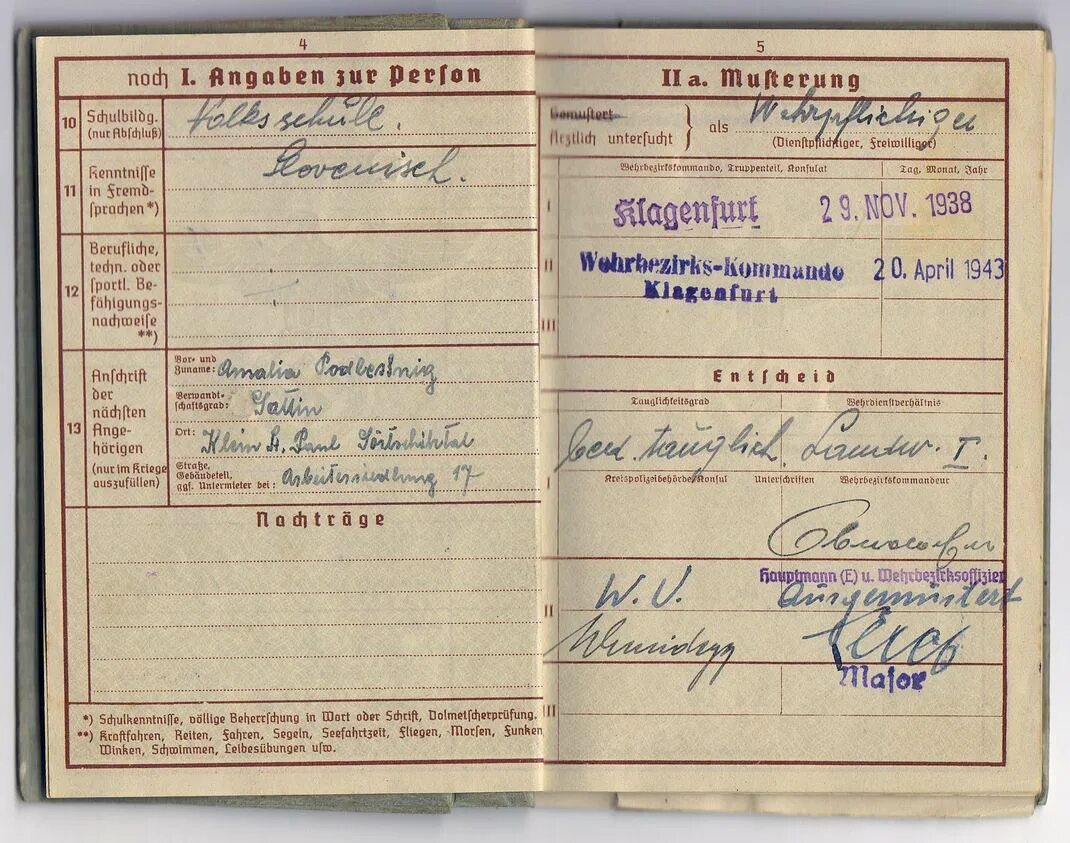 4
noch I. Angaben zur Person
10
Schulbildg.
(nur Abschluß)
Volksschule.
11
Kenntnisse
in Fremd-
sprachen *)
Slovenisch.
12
Berufliche,
techn. oder
sportl. Be-
fähigungs-
nachweise
**)
13
Anschrift
der
nächsten
Ange-
hörigen
(nur im Kriege
auszufüllen)
Vor- und
Zuname: Amalia Podbesnig
Verwandt-
schaftsgrad: Gattin
Ort: Klein St. Paul Görtschitztal
Straße,
Gebäudeteil,
ggf. Untermieter bei: Arbeitersiedlung 17
Nachträge
*) Schulkenntnisse, völlige Beherrschung in Wort oder Schrift, Dolmetscherprüfung.
**) Kraftfahren, Reiten, Fahren, Segeln, Seefahrtzeit, Fliegen, Morsen, Funken
Winken, Schwimmen, Leibesübungen usw.
5
II a. Musterung
Gemustert
Ärztlich untersucht } als Wehrpflichiger
(Dienstpflichtiger, Freiwilliger)
Wehrbezirkskommando, Truppenteil, Konsulat
Tag, Monat, Jahr
I
Klagenfurt 29. NOV. 1938
II
Wehrbezirks-Kommando 20. April 1943
Klagenfurt
III
Entscheid
Tauglichkeitsgrad
Wehrdienstverhältnis
bed. tauglich. Landw. I.
I
Kreispolizeibehörde/Konsul Unterschriften Wehrbezirkskommandeur
Hauptmann (E) u. Wehrbezirksoffizier
II
W. U. Ausgemustert
Major
III